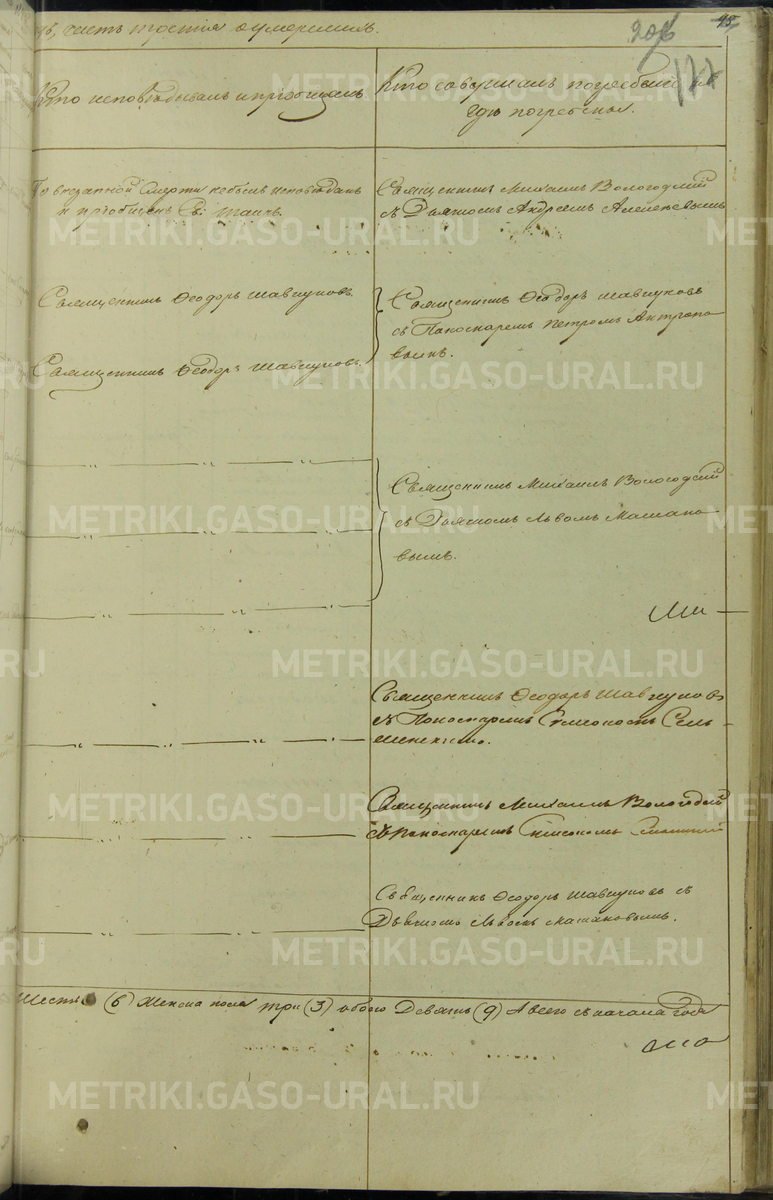 часть третія о умершихъ.
177
Кто исповѣдывалъ и пріобщалъ
Кто совершалъ погребеніе и
гдѣ погребены.
По внезапной смерти не былъ исповѣданъ
и пріобщенъ Св: Таинъ.
Священникъ Михаилъ Вологодскій
съ Діакономъ Андреемъ
Священникъ Ѳеодоръ Шавкуновъ
Священникъ Ѳеодоръ Шавкуновъ.
Священникъ Ѳеодоръ Шавкуновъ
съ Пономаремъ Петромъ Антропо
вымъ.
Священникъ Михаилъ Вологодскій
съ Діакономъ Львомъ Мамано
вымъ.
Священникъ Ѳеодоръ Шавкуновъ
съ Пономаремъ
Священникъ Михаилъ Вологодскій
съ Пономаремъ
Священникъ Ѳеодоръ Шавкуновъ съ
Діакономъ Львомъ Мамановымъ.
(6) Женска пола три (3) обоего Девять (9) А всего съ начала года
METRIKI.GASO-URAL.RU